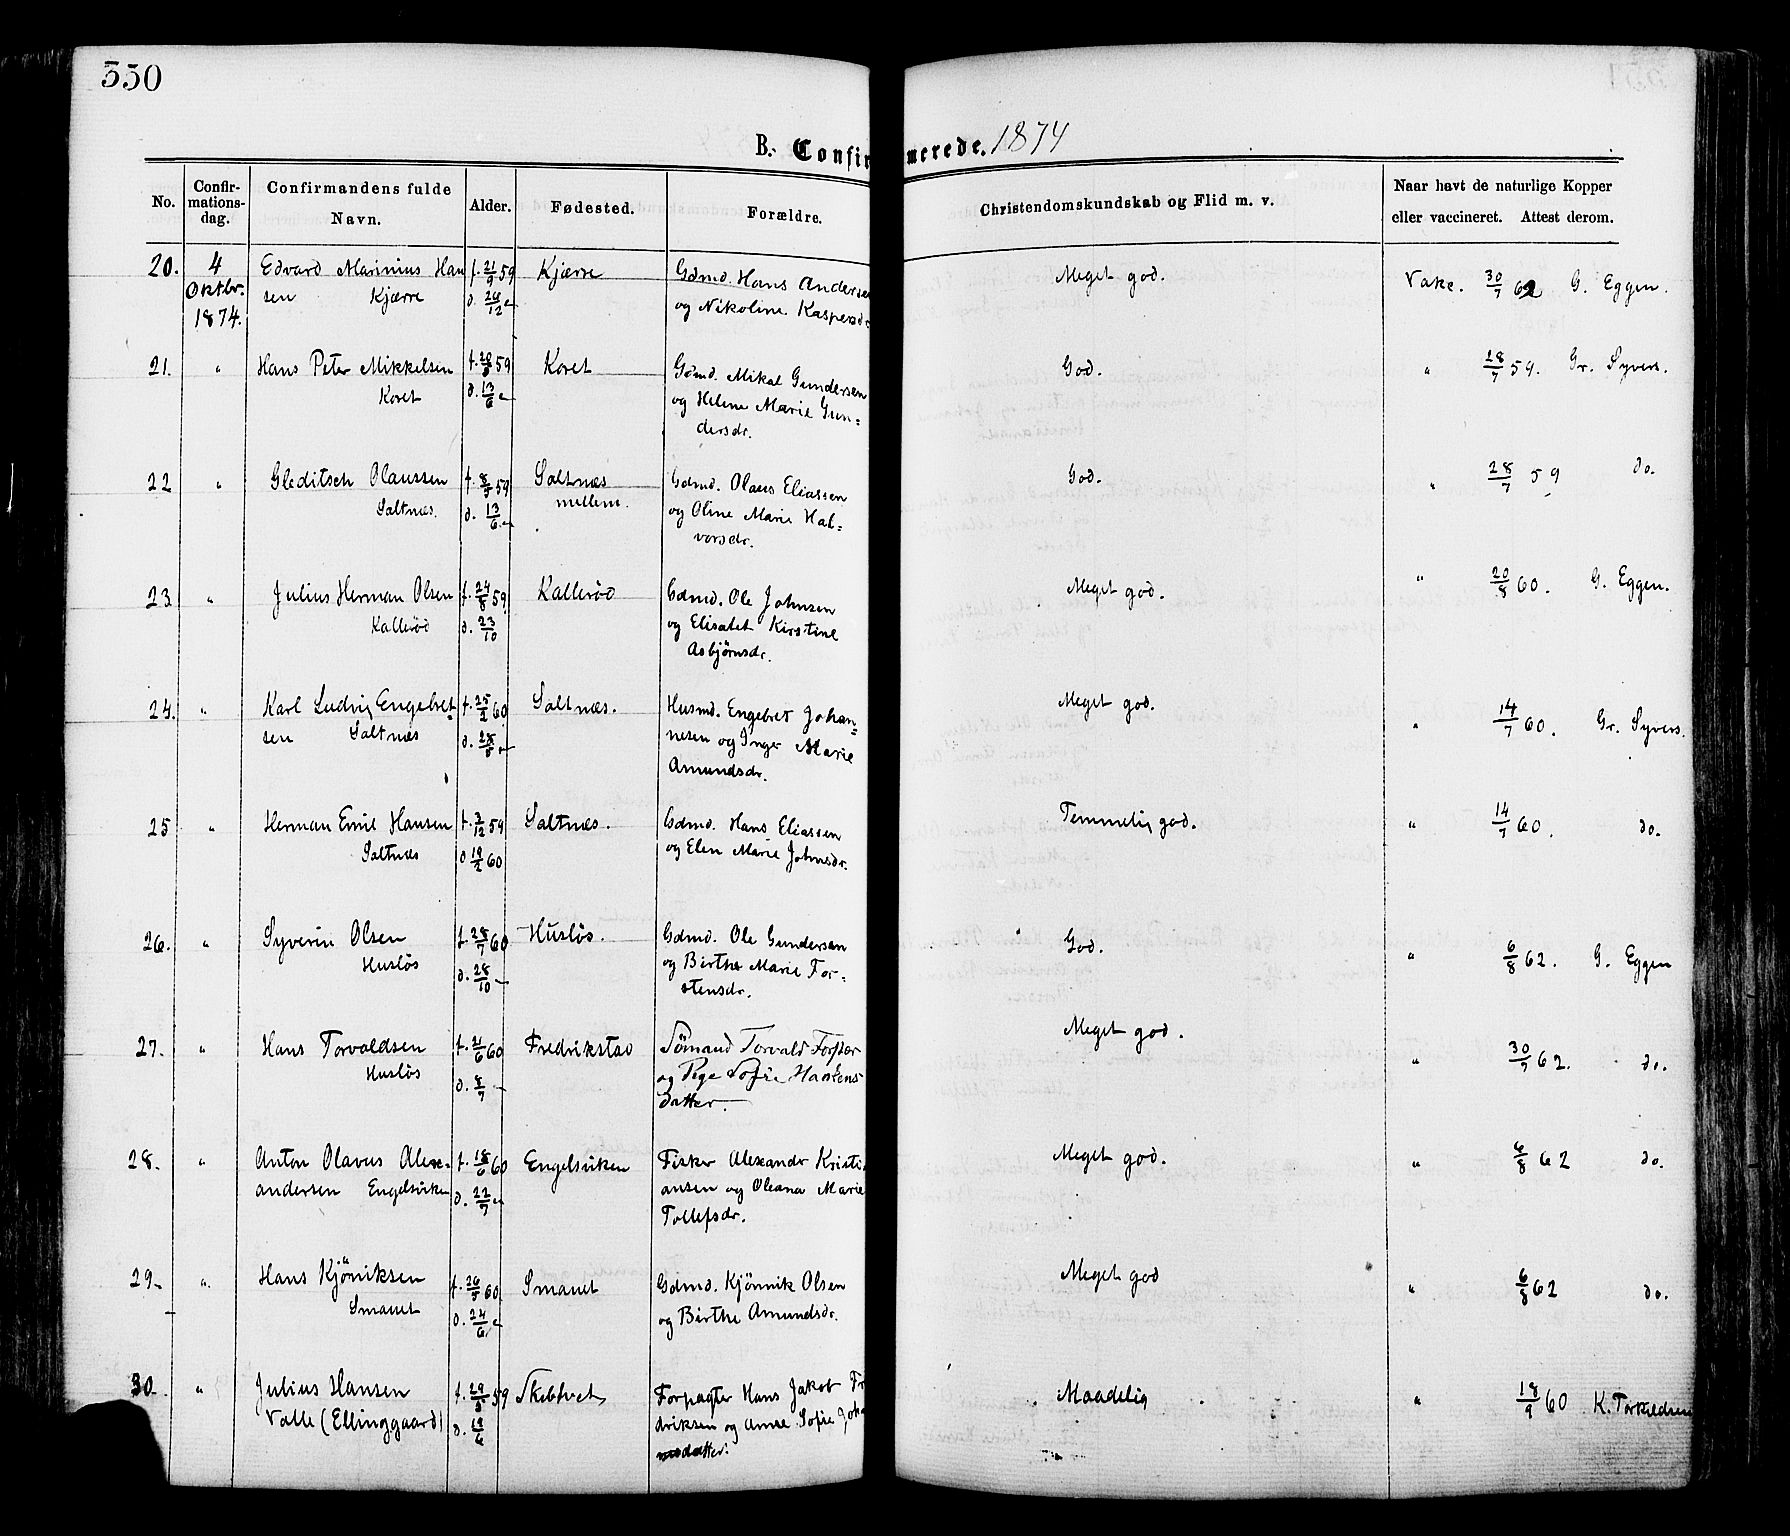 330
B. Confirmerede. 1874
No. Confirmationsdag. Confirmandens fulde Navn. Alder. Fødested. Forældre. Christendomskundskab og Flid m. v. Naar havt de naturlige Kopper eller vaccineret. Attest derom.
20. 4 Oktbr. 1874. Edvard Marinius Hansen Kjærre f. 21/9 59 d. 26/12 Kjærre Gdmd. Hans Andersen og Nikoline Kaspersd. Meget god. Vake. 30/7 62 G. Eggen.
21. " Hans Peter Mikkelsen Koret f. 59 d. 13/6 Koret Gdmd. Mikal Gundersen og Helene Marie Gundersdr. God. " 28/7 59. Gr. Syvers.
22 " Gleditsch Olaussen Saltnæs. f. 8/5 59 d. 13/6 Saltnæs mellem. Gdmd. Olaus Eliassen og Oline Marie Halvorsdr. God. " 28/7 59 do.
23. " Julius Herman Olsen Kallerød f. 24/8 59 d. 23/10 Kallerød Gdmd. Ole Johnsen og Elisabet Kirstine Asbjørnsdr. Meget god. " 20/8 60. G. Eggen.
24. " Karl Ludvig Engebretsen Saltnæs f. 25/2 60 d. 28/5 Saltnæs. Husmd. Engebret Johannesen og Inger Marie Amundsdr. Meget god. " 14/7 60. Gr. Syvers.
25 " Herman Emil Hansen Saltnæs f. 3/12 59 d. 19/2 60 Saltnæs. Gdmd. Hans Eliassen og Elen Marie Johnsdr. Temmelig god. " 14/7 60. do.
26. " Syverin Olsen Husløs f. 28/7 60 d. 28/10 Husløs. Gdmd. Ole Gundersen og Birthe Marie Torstensdr. God. " 6/8 62. G. Eggen
27. " Hans Torvaldsen Husløs f. 21/6 60 d. 8/7 Fredrikstad Sømand Torvald og Pige Sofie Hansens datter. Meget god. " 30/7 62. do.
28. " Anton Olavus Alexandersen Engelsviken f. 18/6 60 d. 22/7 Engelsviken Fisker Alexander Kristiansen og Oleana Marie Tollefsdr. Meget god. " 6/8 62 do.
29. " Hans Kjønniksen Smauet f. 26/5 60. d. 24/6 Smauet Gdmd. Kjønnik Olsen og Birthe Amundsdr. Meget god " 6/8 62 do.
30. " Julius Hansen Valle (Ellinggaard) f. 29/5 59 d. 19/6 Skebtvet Forpagter Hans Jakob Fredriksen og Anne Sofie Maadelig " 18/9 60 K. Torkildsen